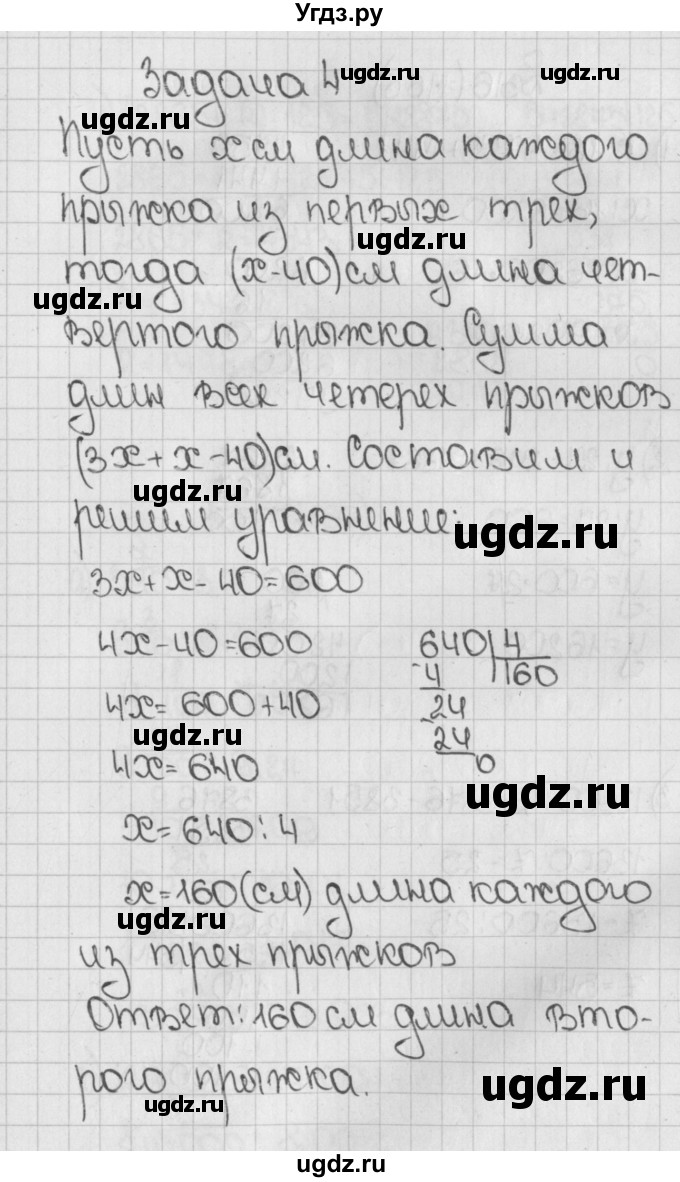 Угдз.ру
Задача 4
ugdz.ru
ugdz.ru
ugdz.ru
Пусть x см длина каждого
прыжка из первых трех,
ugdz.ru
тогда (x-40)см длина чет-
ugdz.ru
вертого прыжка. Сумма
длин всех четерех прыжков
(3x+x-40)см. Составим и
ugdz.ru
решим уравнение:
ugdz.ru
3x+x-40=600
4x-40=600
4x=600+40
ugdz.ru
4x=640
x=640:4
640 4
-4 160
-24
24
0
ugdz.ru
x=160(см) длина каждого
ugdz.ru
из трех прыжков
Ответ: 160 см длина вто-
рого прыжка.
ugdz.ru
ugdz.ru
ugdz.ru